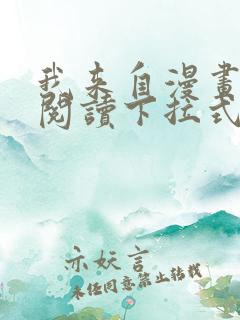 我来自漫畫
閱讀下拉式
亦妖言
未经同意禁止转载